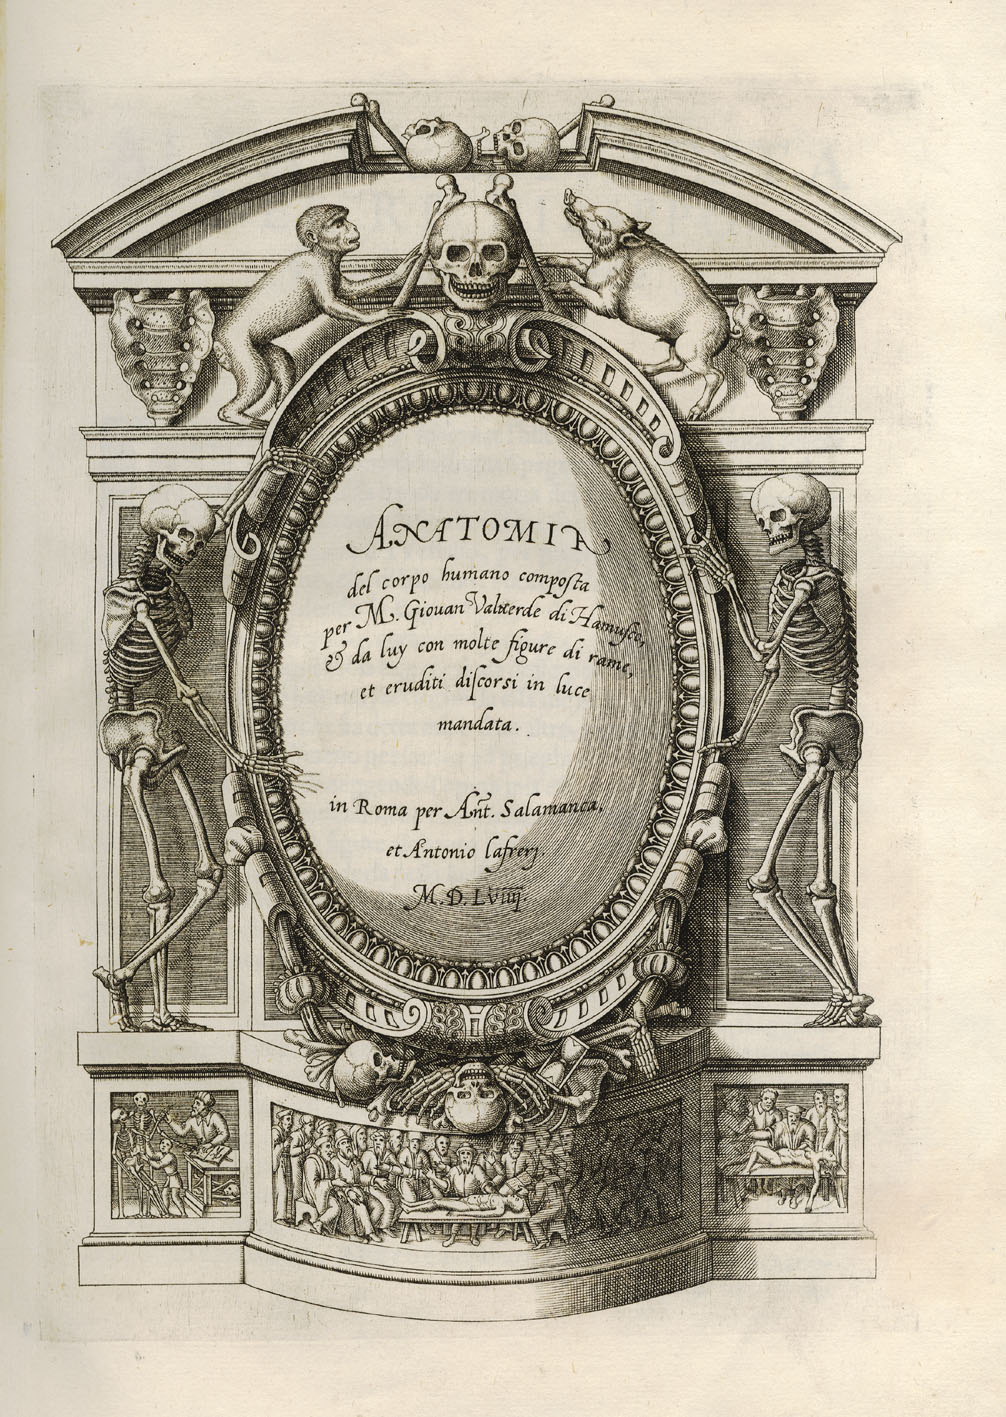 ANATOMIA
del corpo humano composta
per M. Giouan Valuerde di Hamusco,
& da luy con molte figure di rame,
et eruditi diſcorsi in luce
mandata.
in Roma per Ant. Salamanca,
et Antonio Lafrerj.
M. D. LVIIII.